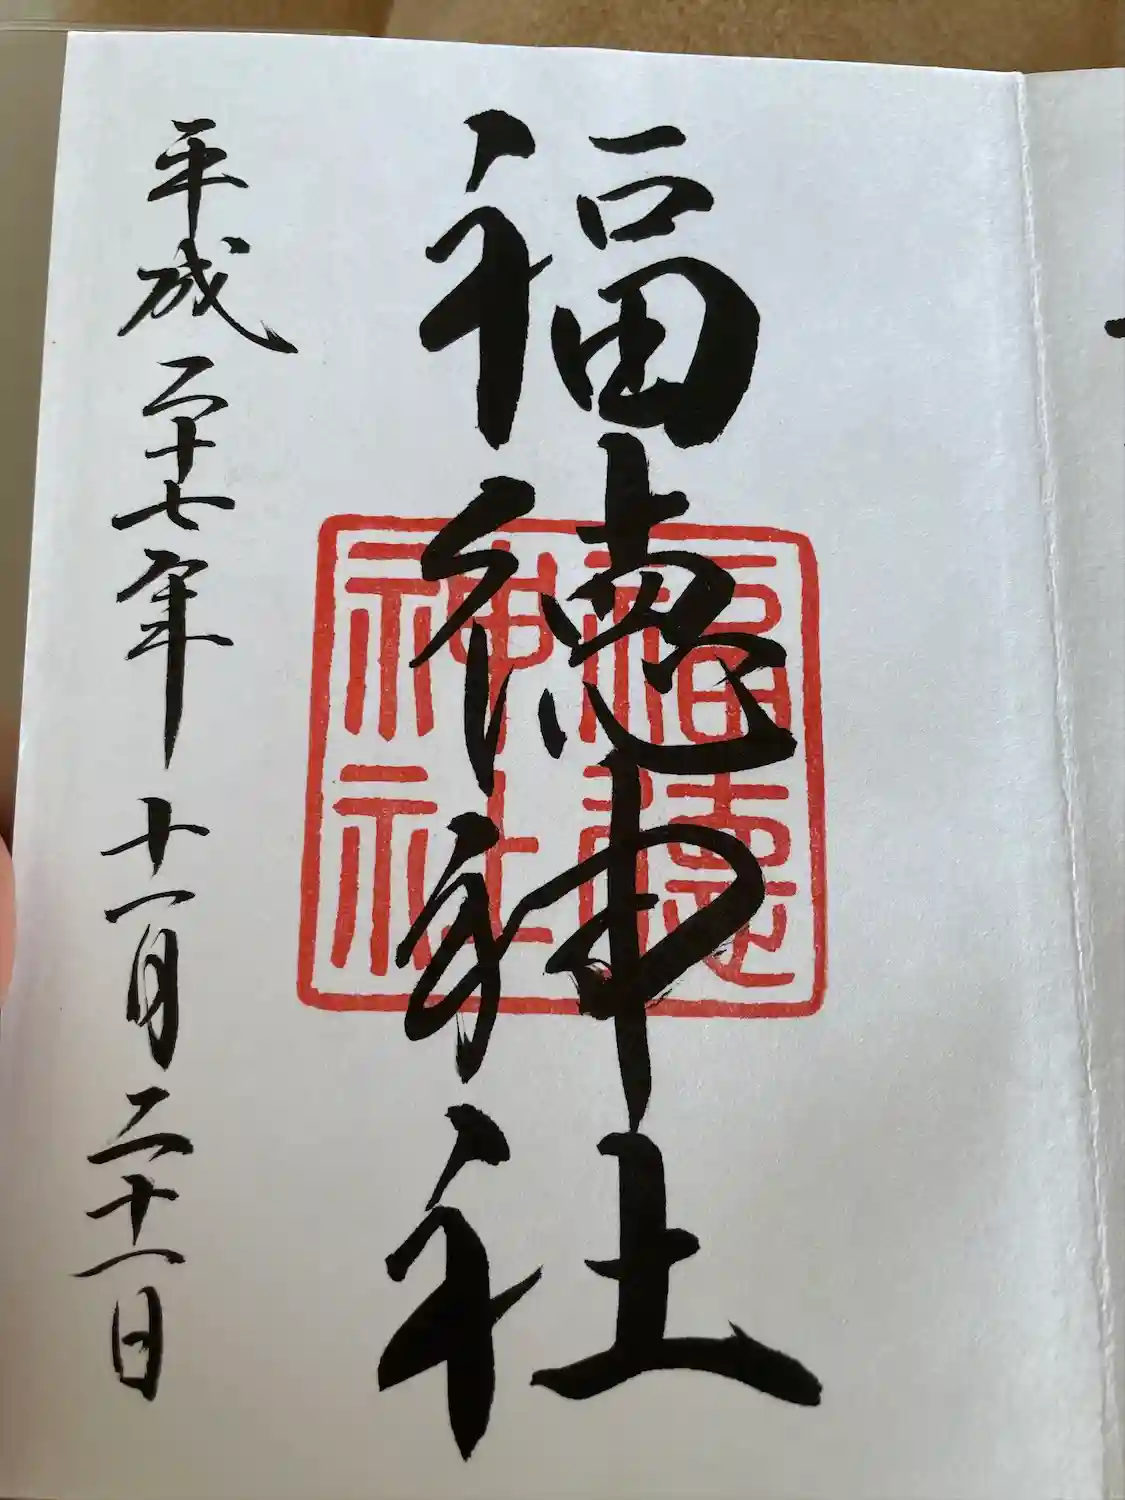 福徳神社
福徳
神社
平成二十七年 十一月二十一日